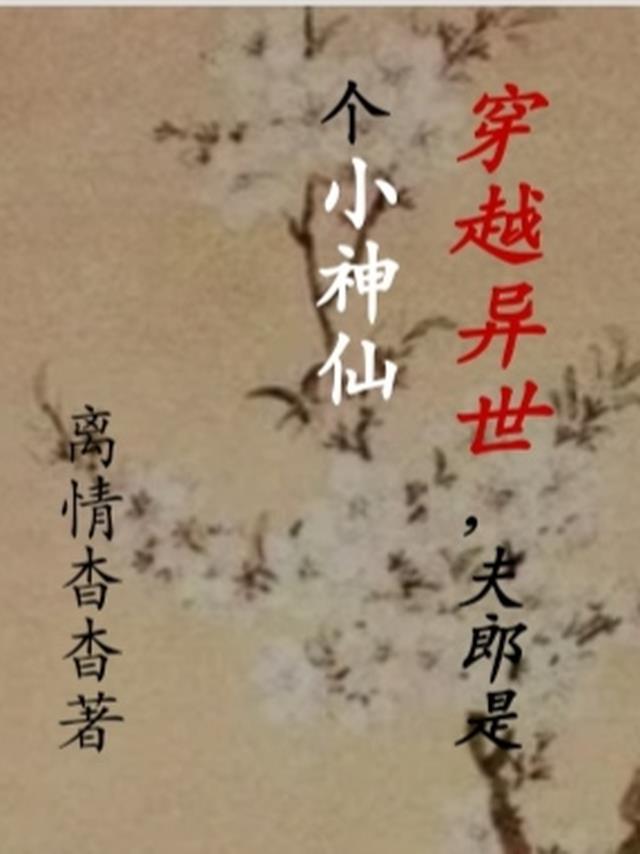 穿越异世，夫郎是
个小神仙
离情杳杳著